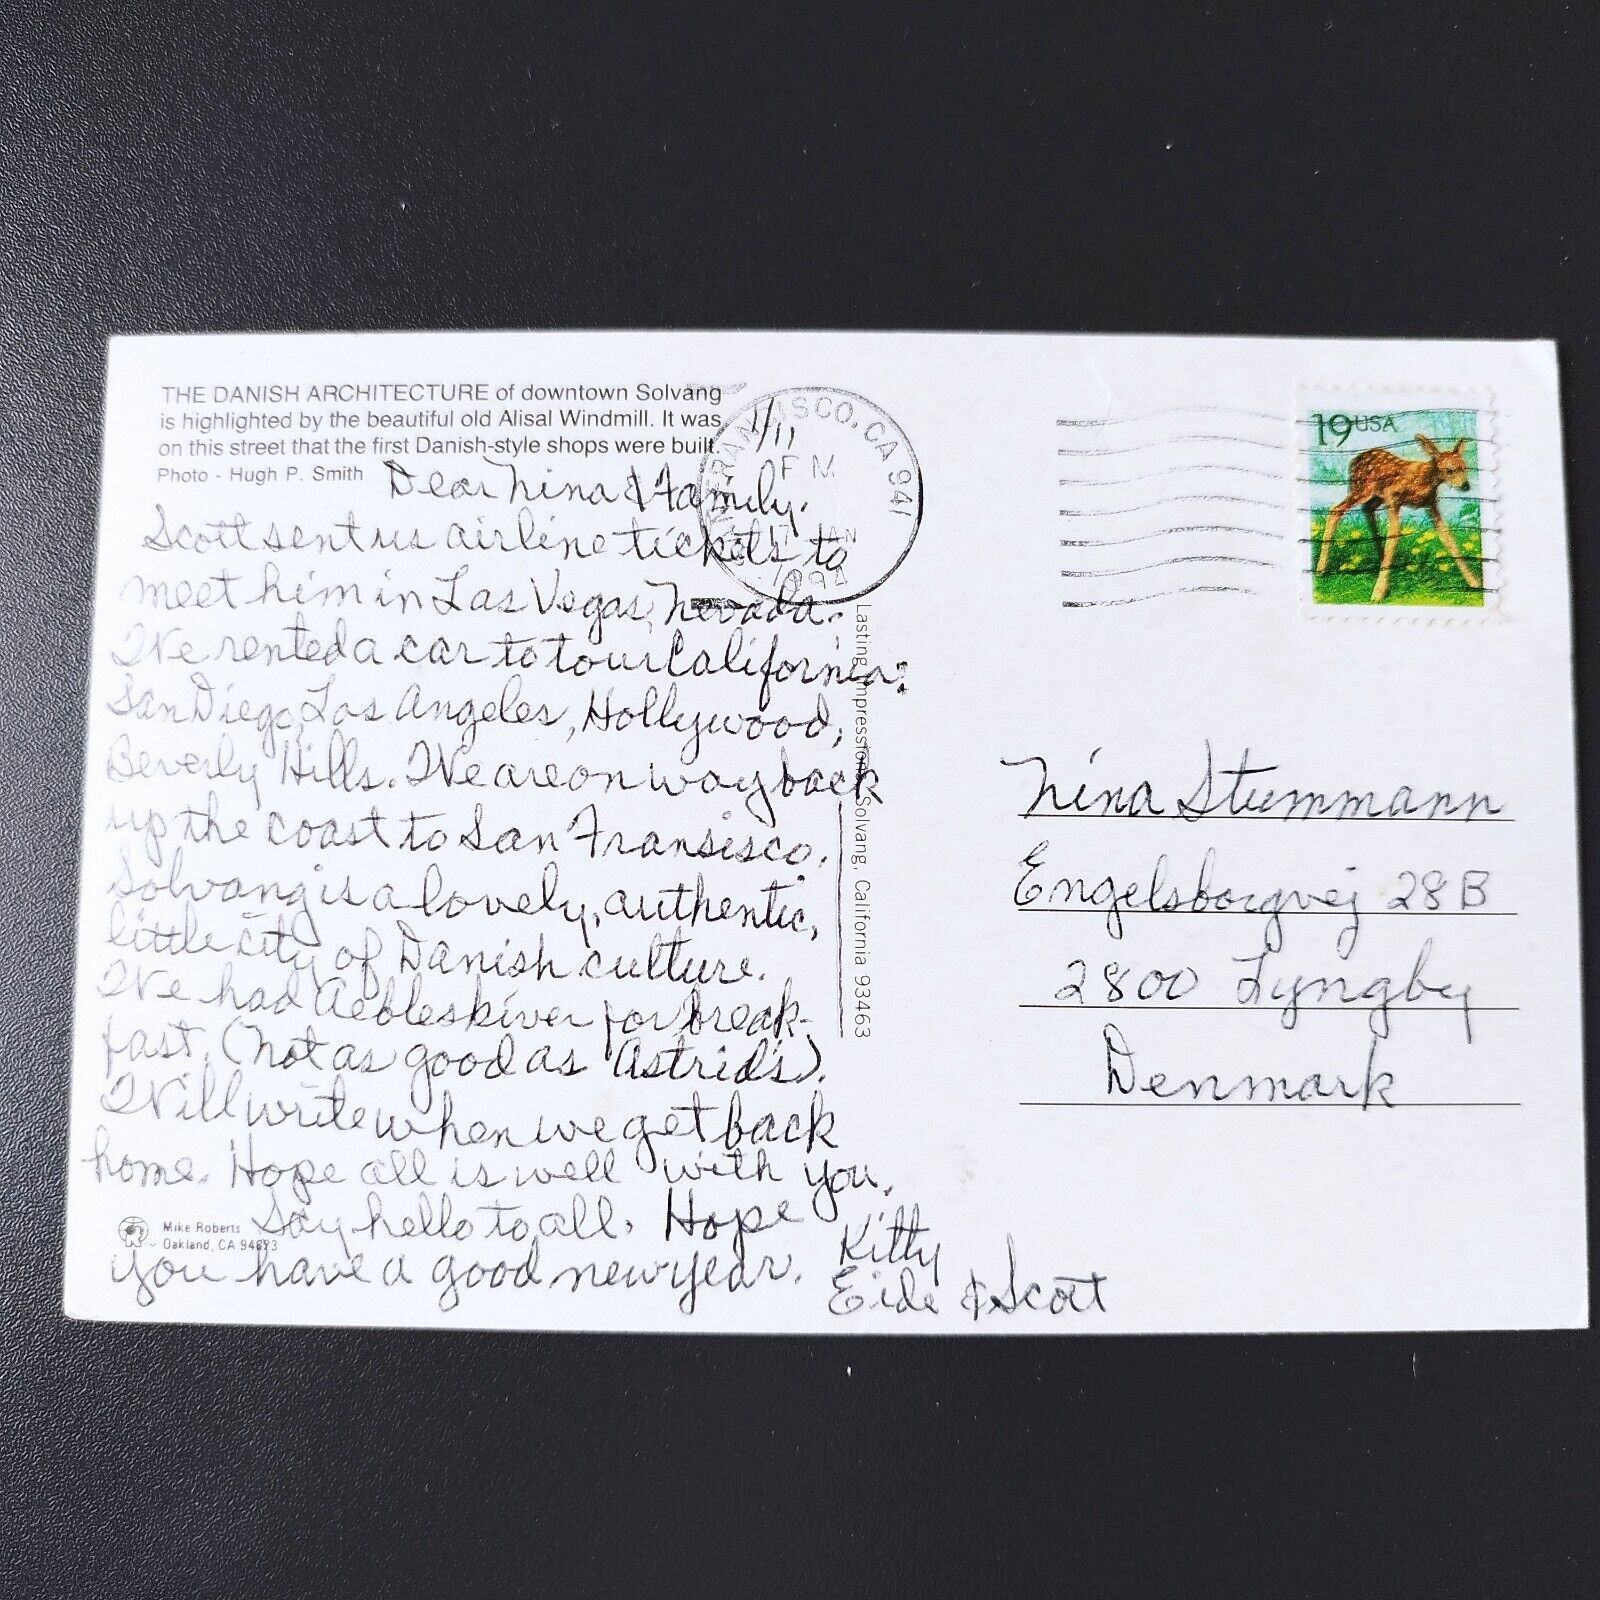 THE DANISH ARCHITECTURE of downtown Solvang
is highlighted by the beautiful old Alisal Windmill. It was
on this street that the first Danish-style shops were built.
Photo - Hugh P. Smith
1/11
Dear Nina & Family.
Scott sent us airline tickets to
meet him in Las Vegas, Nevada.
We rented a car to tour California:
San Diego, Los Angeles, Hollywood,
Beverly Hills. We are on way back
up the coast to San Fransisco.
Solvang is a lovely, authentic,
little city of Danish culture.
We had Aebleskiver for break-
fast. (Not as good as Astrid's).
Will write when we get back
home. Hope all is well with you.
Say hello to all. Hope
you have a good new year.
Kitty
Eide & Scott
Mike Roberts
Oakland, CA 94623
Lasting Impressions, Solvang, California 93463
FRANCISCO, CA 941
PM
11 JAN
199
19 USA
Nina Stummann
Engelsborgvej 28B
2800 Lyngby
Denmark